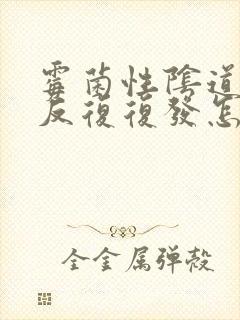 霉菌性陰道
反復復發怎
全金属弹殻